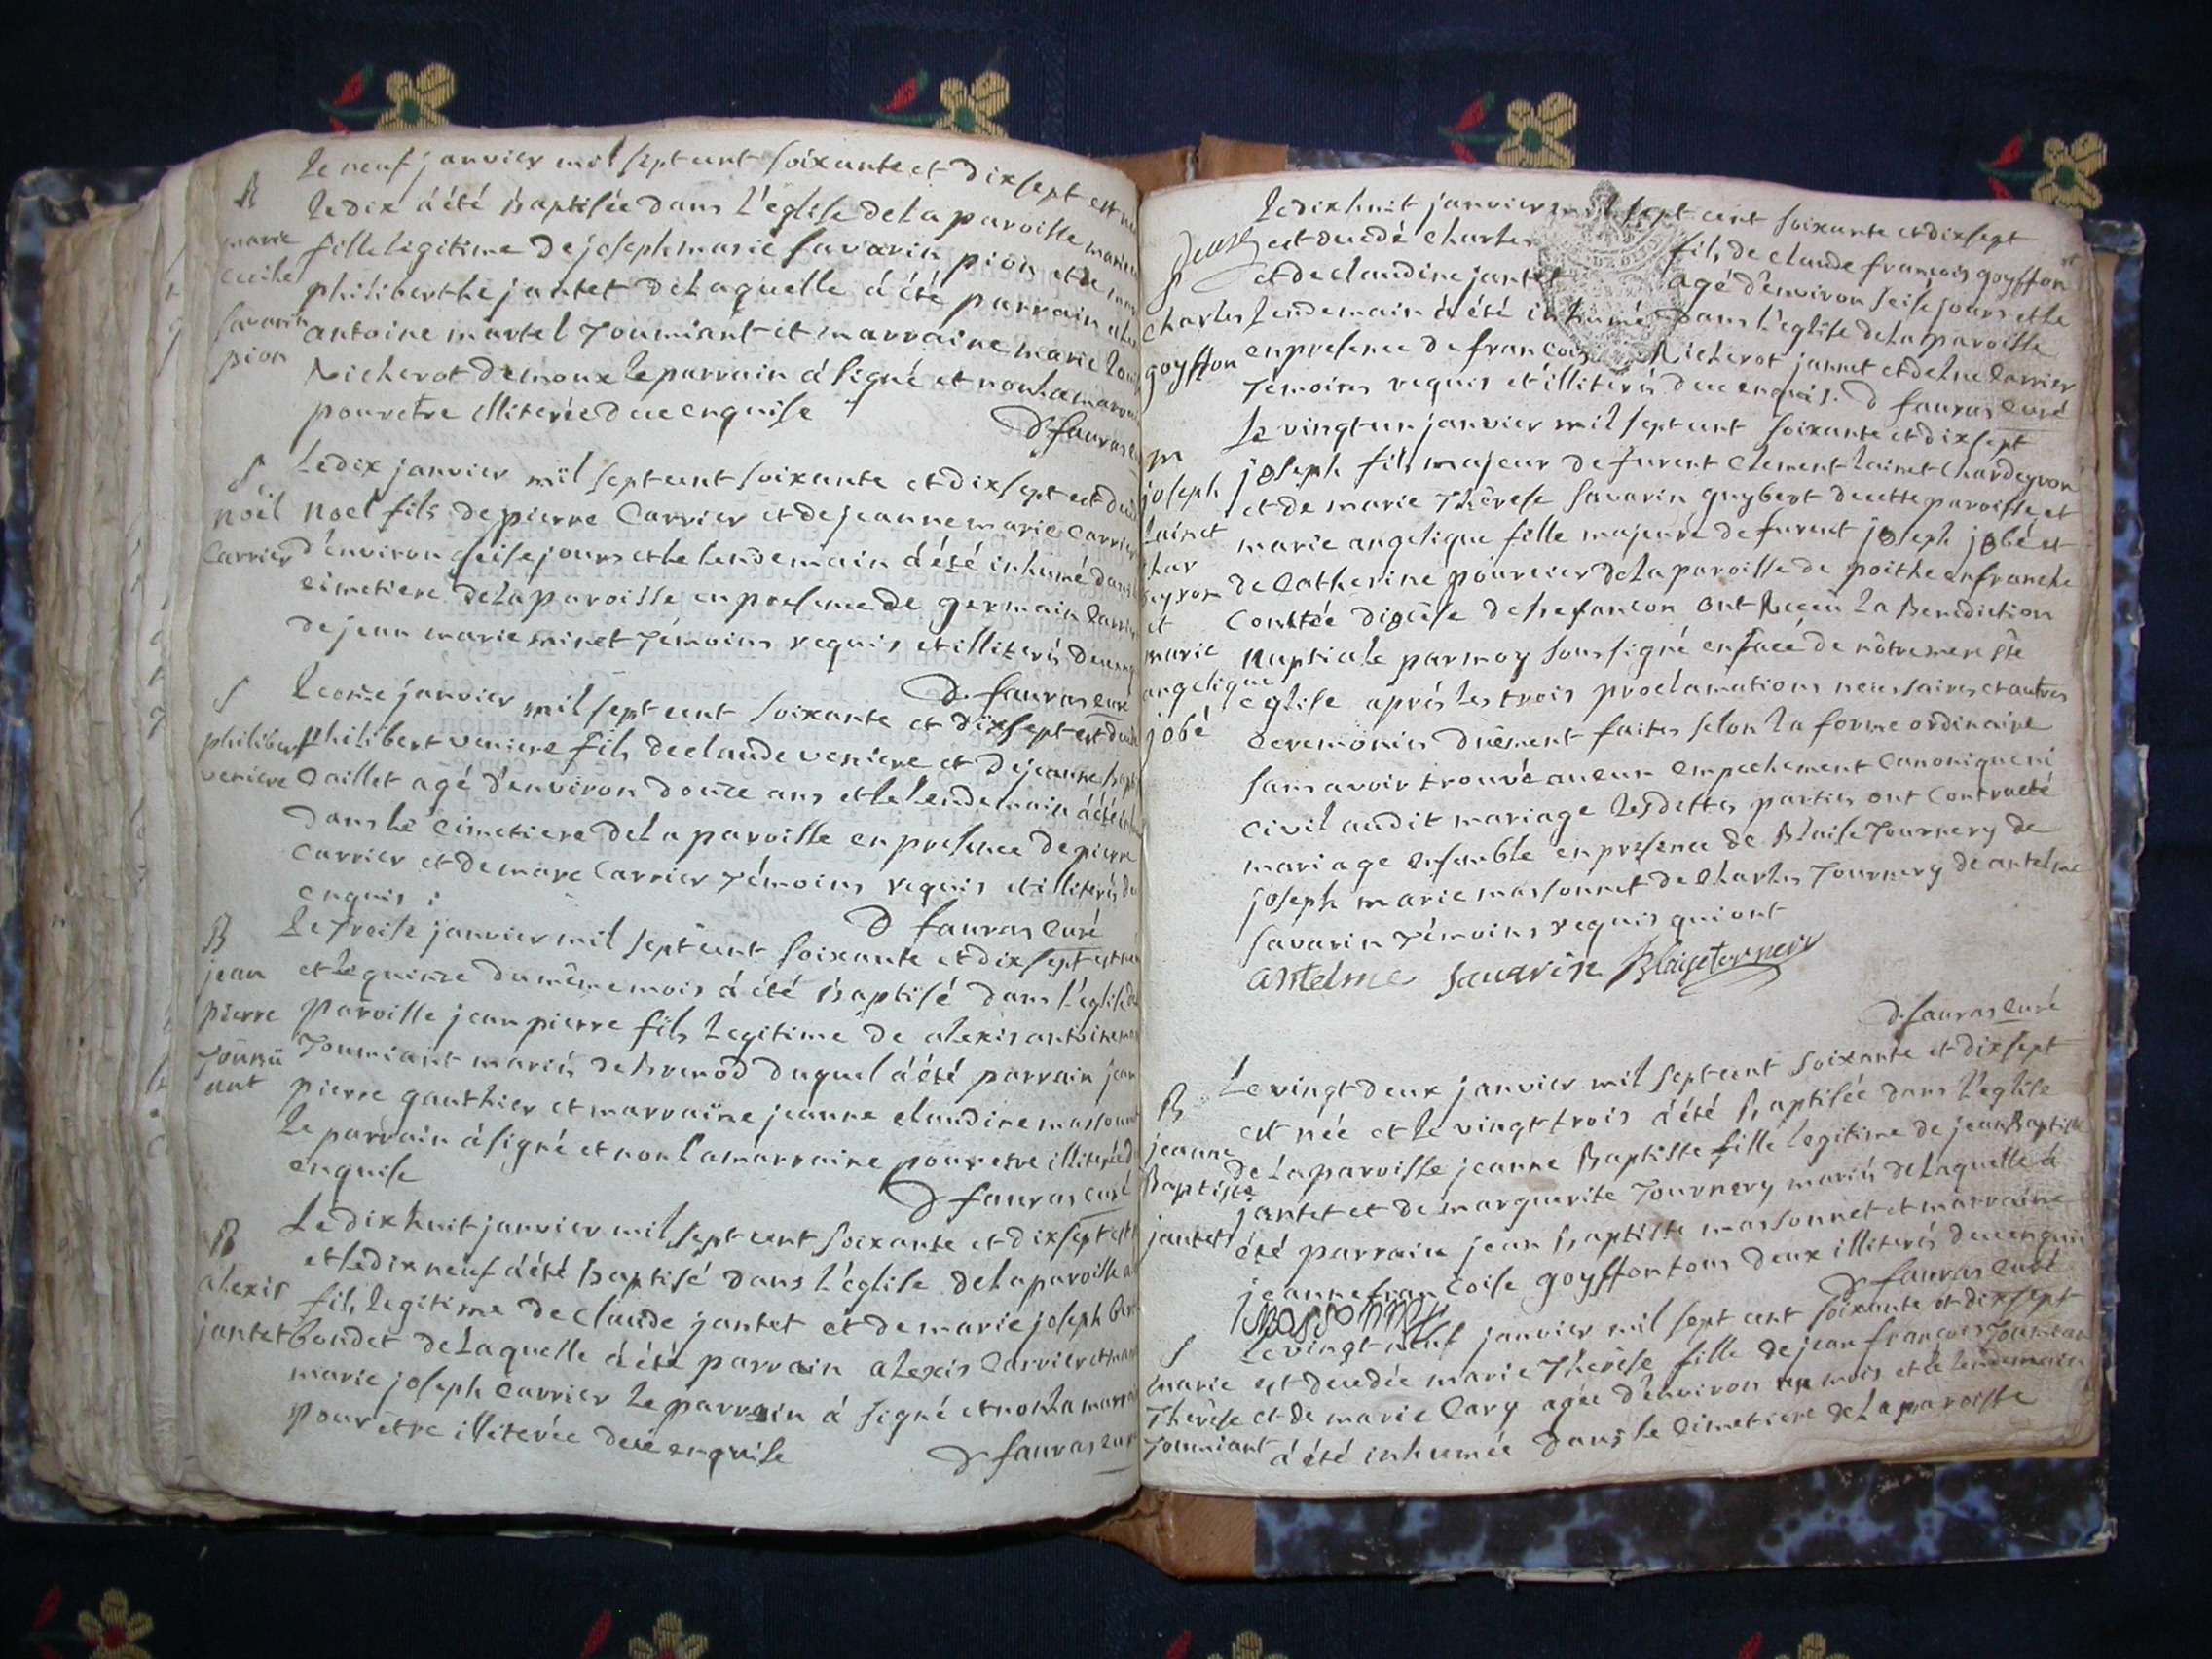 Le neuf janvier mil sept cent soixante et dixsept est née
B
le dix á été Baptisée dans l'église de la paroisse marie
marie
cecile
savarin
pion
fille legitime de joseph marie savarin pion et de marie
philiberthe jantet de laquelle á été parrain
antoine martel Tourniant et marraine marie
Nicherot demoux le parrain á signé et non la marraine
pour etre illiterée dece enquise
D. fauras
S
noël
Carrier
Le dix janvier mil sept cent soixante et dixsept est
noel fils de pierre Carrier et de jeanne marie Carrier
d'environ seise jours et le lendemain á été inhumé dans
cimetiere de la paroisse en presence de germain Carrier
de jean marie minet Témoins requis et illiterés
D. fauras curé
S
philibert
veniere
Le onze janvier mil sept cent soixante et dixsept est
philibert veniere fils de claude veniere et de jeanne
Caillet agé d'environ douze ans et le lendemain á été
dans le cimetiere de la paroisse en presence de pierre
carrier et de marc Carrier Témoins requis et illiterés
enquis :
D fauras curé
B
jean
pierre
Tourni
ant
Le Treise janvier mil sept cent soixante et dixsept est né
et le quinze du même mois á été Baptisé dans l'eglise de
Paroisse jean pierre fils legitime de alexis antoine
Tourniant mariés de Brenod duquel á été parrain jean
pierre gauthier et marraine jeanne claudine massonnet
Le parrain á signé et non la marraine pour etre illiterée
enquise
D fauras curé
B
alexis
jantet
Le dixhuit janvier mil sept cent soixante et dixsept est
et le dix neuf á été Baptisé dans l'église de la paroisse
fils legitime de claude jantet et de marie joseph
bondet de laquelle á été parrain alexis Carrier et
marie joseph Carrier Le parrain á signé et non la marraine
pour etre illiterée dece enquise
D fauras curé
Le dixhuit janvier mil sept cent soixante et dixsept
S
Charles
goyffon
est decedé Charles fils de claude françois goyffon
et de claudine jantet agé d'environ seise jours et le
lendemain á été inhumé dans l'eglise de la paroisse
en presence de françois Nicherot jannet et de Carrier
Témoins requis et illiterés dece enquis. D fauras curé
M
joseph
lainet
char
deyron
et
marie
angelique
jobé
Le vingt un janvier mil sept cent soixante et dixsept
joseph fils majeur de furent Clement lainet Chardeyron
et de marie Thérese savarin guybert de cette paroisse et
marie angelique fille majeure de furent joseph jobé et
de Catherine pourcier de la paroisse de poithe en franche
Comtée diocèse de besançon ont Reçeu la Benediction
Nuptiale par moy soussigné en face de nôtre mere ste
eglise aprés les trois proclamations necessaires et autres
Ceremonies duêment faites selon la forme ordinaire
sans avoir trouvé aucun empechement Canonique ni
civil au dit mariage lesdettes parties ont Contracté
mariage ensemble en presence de Blaise Tournery de
joseph marie massonnet de Charles Tournery de antelme
savarin Témoins requis qui ont
antelme savarin Blaise tournery
D. fauras curé
B
jeanne
Baptiste
jantet
Le vingt deux janvier mil sept cent soixante et dixsept
est née et le vingt trois á été Baptisée dans l'eglise
de la paroisse jeanne Baptiste fille legitime de jean Baptiste
jantet et de marguerite Tournery mariés de laquelle á
été parrain jean Baptiste massonnet et marraine
jeanne françoise goyffon tous deux illiterés dece enquis
D fauras curé
S
marie
Thérese
Tourniant
Le vingt neuf janvier mil sept cent soixante et dixsept
est decedée marie Thérese fille de jean françois Tourniant
et de marie Cary agée d'environ un mois et le lendemain
á été inhumée dans le cimetiere de la paroisse